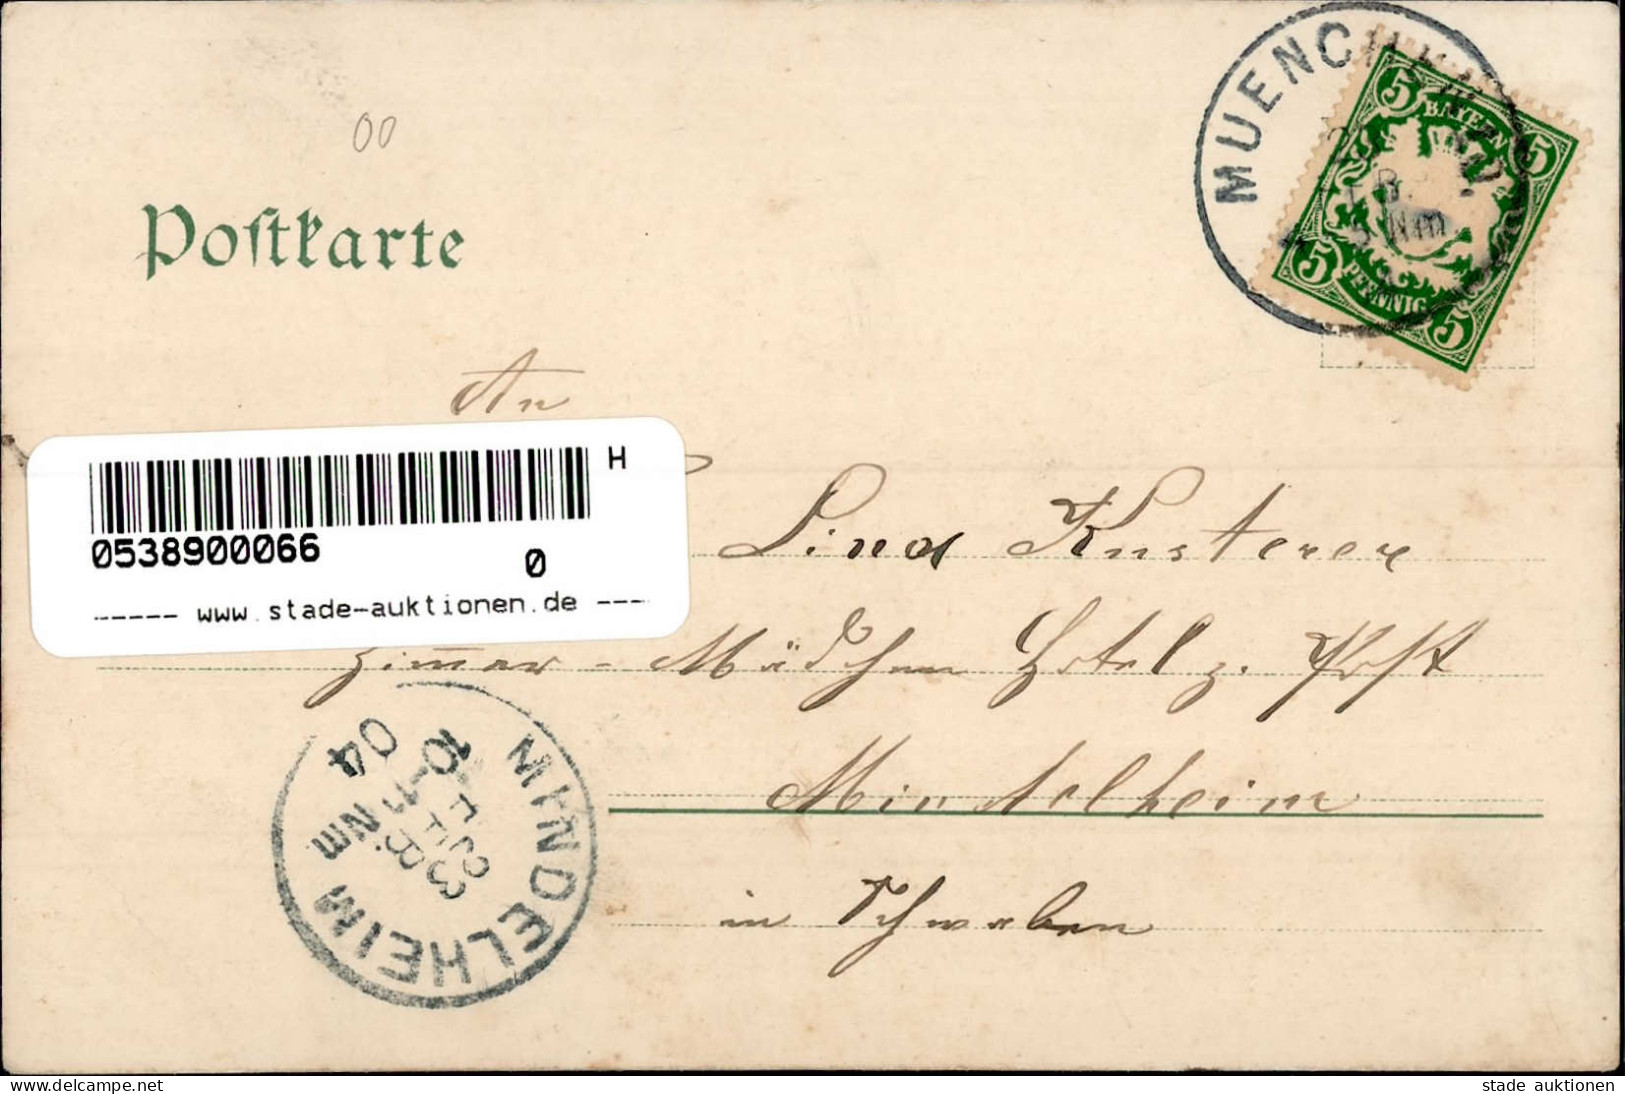 00
Postkarte
MUENCH
5 5
BAYERN
B.
5 Nm
PFENNIG
5 5
An
H
0538900066
0
www.stade-auktionen.de
Lina Kusterer
Zimmer-Mädchen Hotel z. Post
Mindelheim
in Schwaben
MINDELHEIM
23 FEB.
10-11 Nm
04
www.delcampe.net
stade auktionen